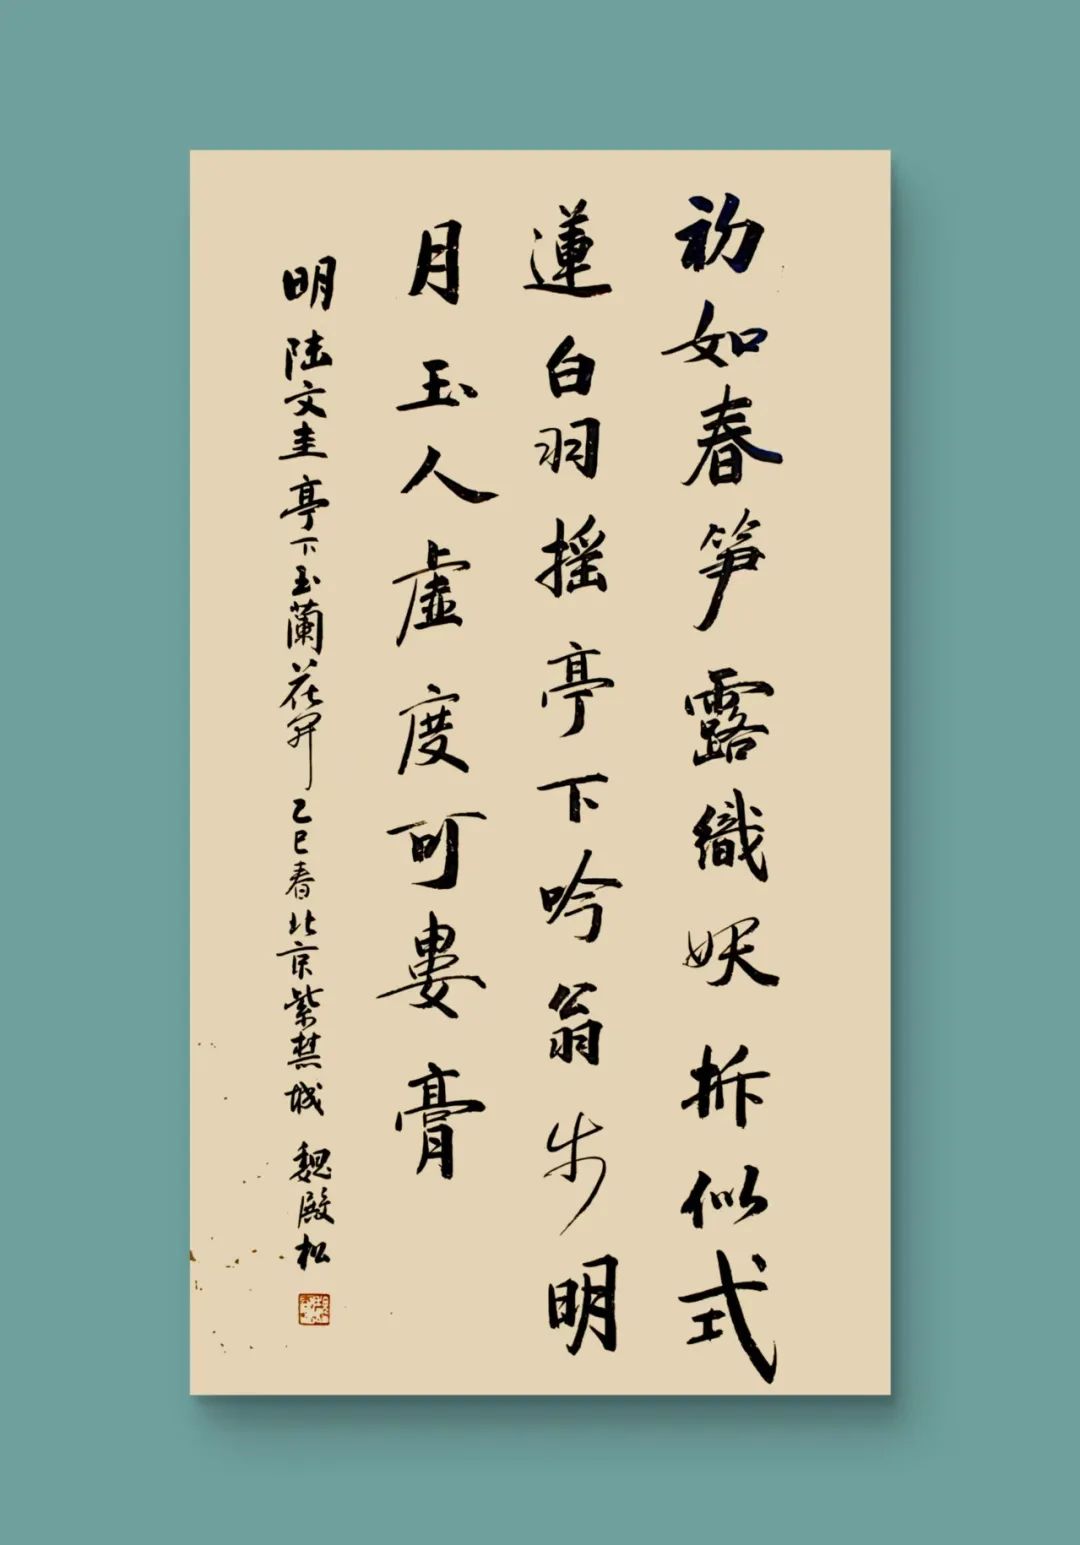 初如春笋露織妖拆似式
蓮白羽摇亭下吟翁步明
月玉人虛度可婁膏
明陆文圭亭下玉蘭花开乙巳春北京紫禁城魏殿松